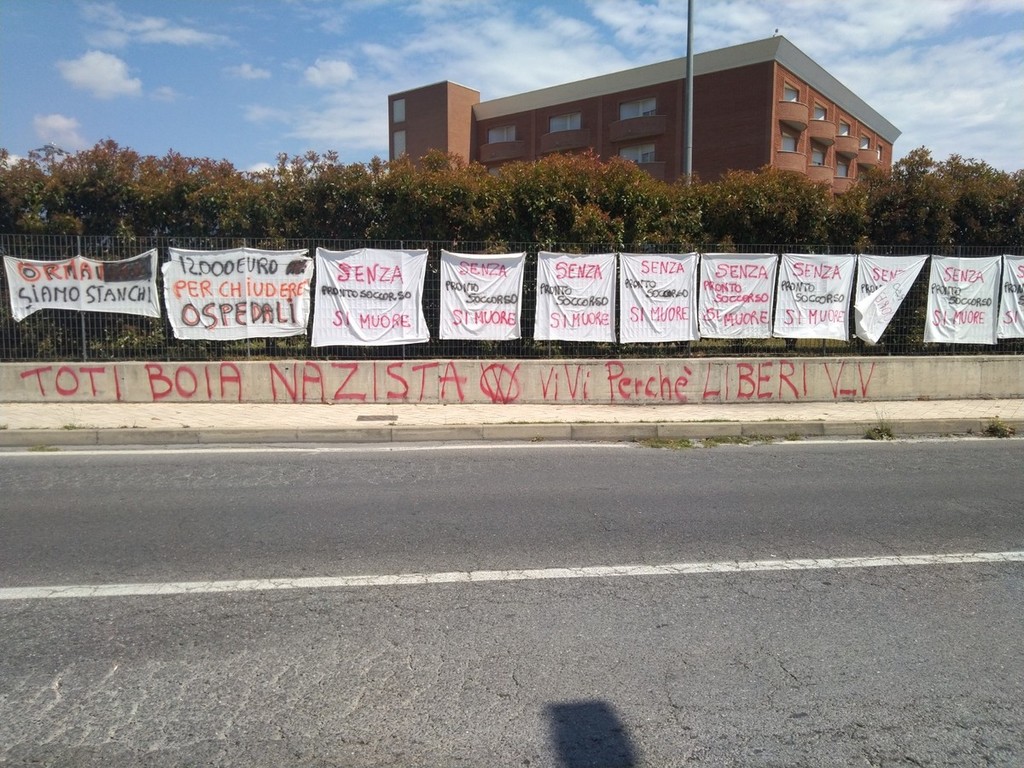 ORMAI
SIAMO STANCHI
12.000 EURO
PER CHIUDERE
OSPEDALI
SENZA
PRONTO SOCCORSO
SI MUORE
SENZA
PRONTO
SOCCORSO
SI MUORE
SENZA
PRONTO
SOCCORSO
SI MUORE
SENZA
PRONTO
SOCCORSO
SI MUORE
SENZA
PRONTO
SOCCORSO
SI MUORE
SENZA
PRONTO
SOCCORSO
SI MUORE
SENZA
SENZA
PRONTO
SOCCORSO
SI MUORE
TOTI BOIA NAZISTA ViVi Perchè LIBERI V_V